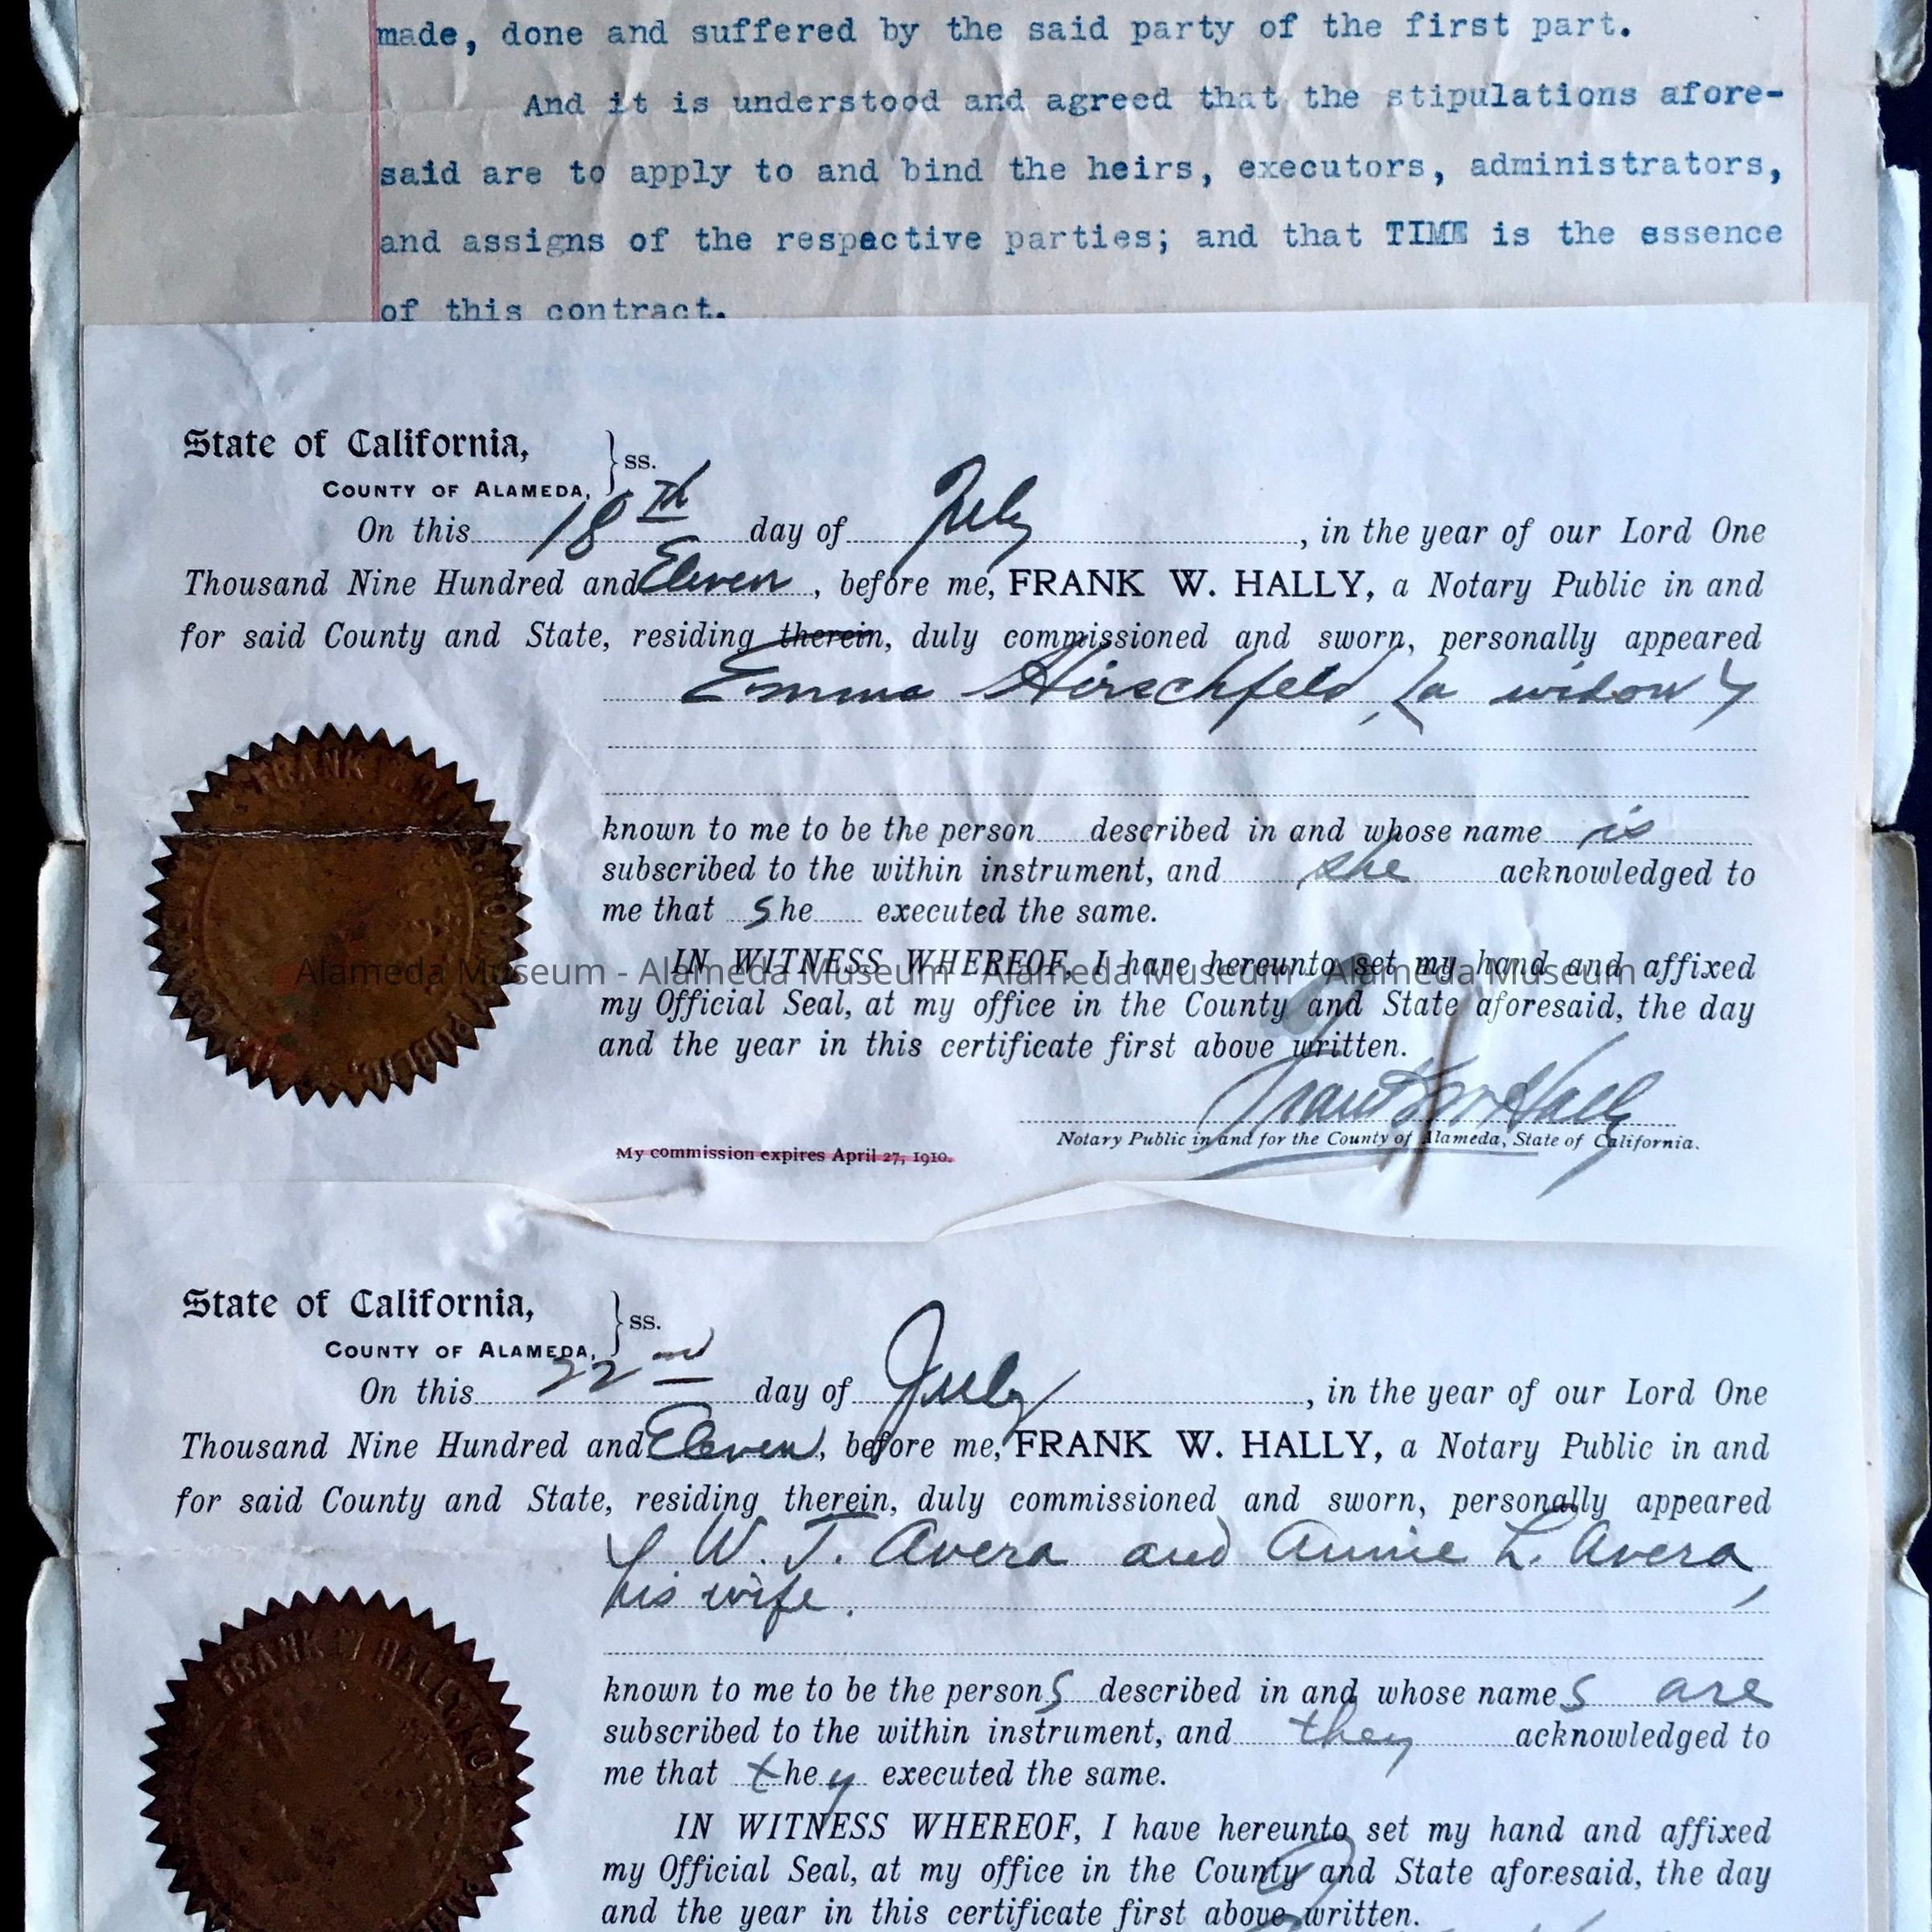 made, done and suffered by the said party of the first part.
And it is understood and agreed that the stipulations afore-
said are to apply to and bind the heirs, executors, administrators,
and assigns of the respective parties; and that TIME is the essence
of this contract.
State of California,
COUNTY OF ALAMEDA, } ss.
On this 18th day of July, in the year of our Lord One
Thousand Nine Hundred and Eleven, before me, FRANK W. HALLY, a Notary Public in and
for said County and State, residing therein, duly commissioned and sworn, personally appeared
Emma Hirschfeld, (a widow)
known to me to be the person described in and whose name is
subscribed to the within instrument, and she acknowledged to
me that She executed the same.
IN WITNESS WHEREOF, I have hereunto set my hand and affixed
Alameda Museum - Alameda Museum - Alameda Museum - Alameda Museum
my Official Seal, at my office in the County and State aforesaid, the day
and the year in this certificate first above written.
Frank W Hally
Notary Public in and for the County of Alameda, State of California.
My commission expires April 27, 1910.
State of California,
COUNTY OF ALAMEDA, } ss.
On this 22nd day of July, in the year of our Lord One
Thousand Nine Hundred and Eleven, before me, FRANK W. HALLY, a Notary Public in and
for said County and State, residing therein, duly commissioned and sworn, personally appeared
W. T. Avera and Annie L. Avera,
his wife.
FRANK W HALLY, NO
known to me to be the persons described in and whose names are
subscribed to the within instrument, and they acknowledged to
me that they executed the same.
IN WITNESS WHEREOF, I have hereunto set my hand and affixed
my Official Seal, at my office in the County and State aforesaid, the day
and the year in this certificate first above written.